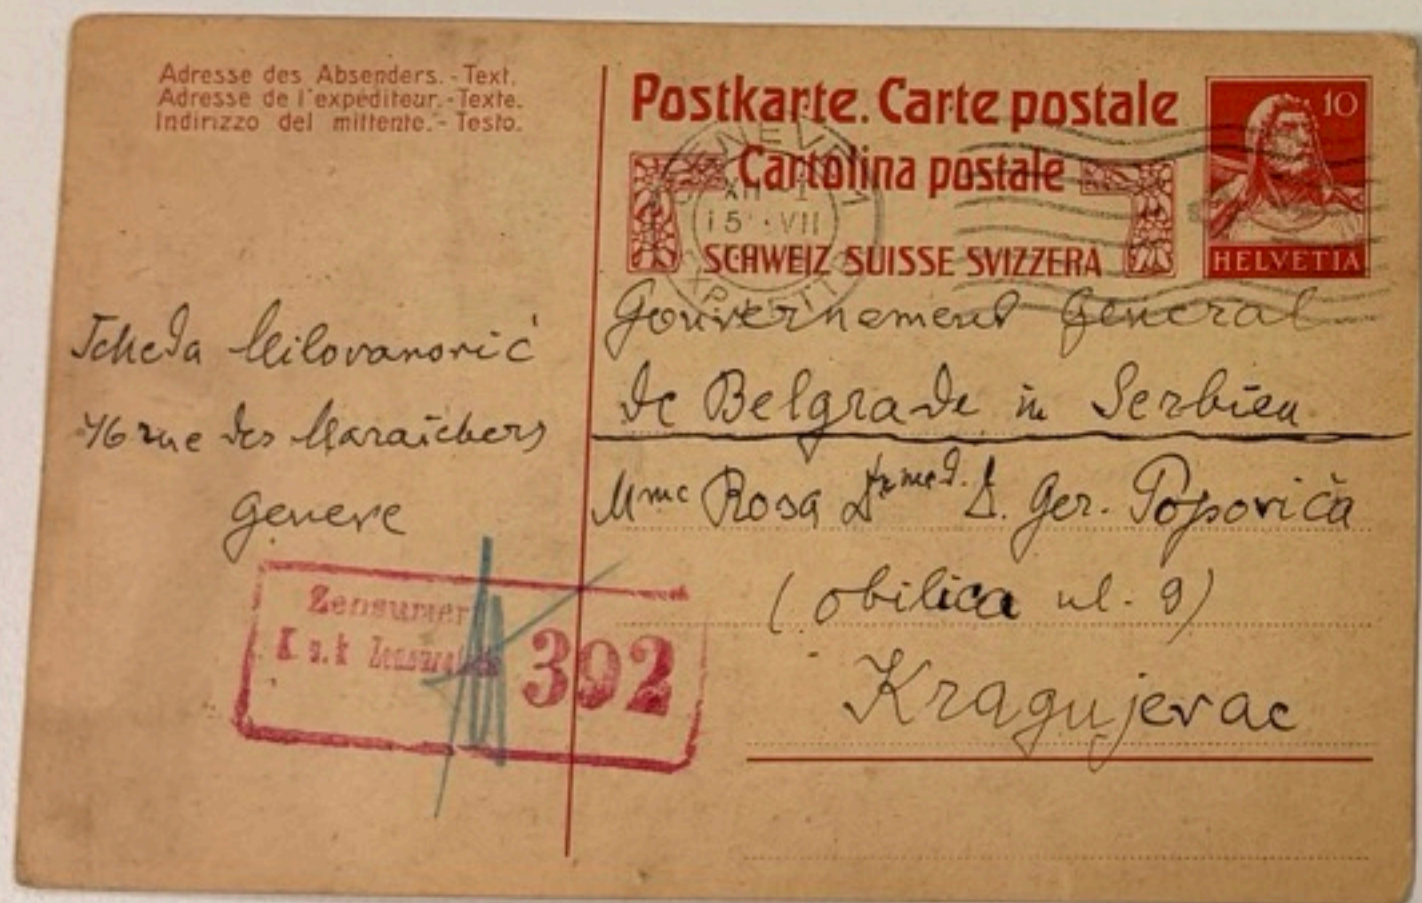 Adresse des Absenders. - Text.
Adresse de l'expéditeur. - Texte.
Indirizzo del mittente. - Testo.
Postkarte. Carte postale
Cartolina postale
SCHWEIZ SUISSE SVIZZERA
10
HELVETIA
GENEVE 1
XII - 1
15 · VII
Milovanović
46 rue des Maraîchers
Geneve
Gouvernement General
de Belgrade in Serbien
Mme Rosa Dr med. D. Ger. Popovića
(Obilica ul. 9)
Kragujevac
Zensuriert
K. u. k. 
392